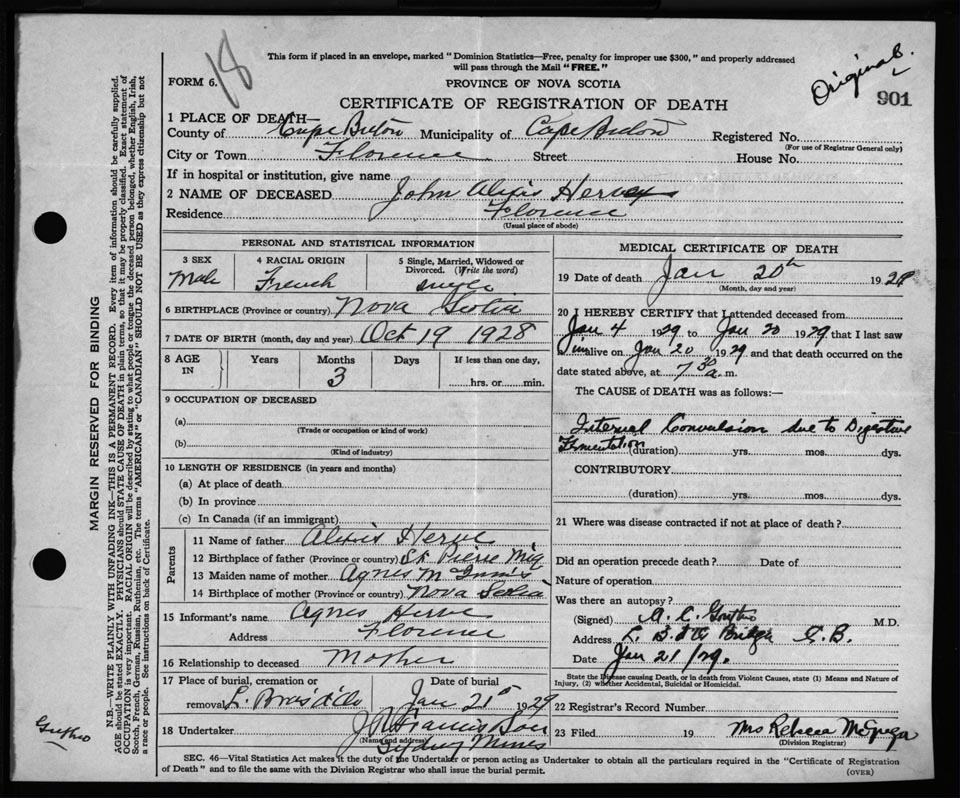 18
This form if placed in an envelope, marked "Dominion Statistics—Free, penalty for improper use $300," and properly addressed
will pass through the Mail "FREE."
Original B.
901
FORM 6.
PROVINCE OF NOVA SCOTIA
CERTIFICATE OF REGISTRATION OF DEATH
1 PLACE OF DEATH—
County of Cape Breton Municipality of Cape Breton Registered No.
(For use of Registrar General only)
City or Town Florence Street House No.
If in hospital or institution, give name
2 NAME OF DECEASED John Alexis Hervey
Residence Florence
(Usual place of abode)
PERSONAL AND STATISTICAL INFORMATION
3 SEX 4 RACIAL ORIGIN 5 Single, Married, Widowed or Divorced. (Write the word)
Male French single
6 BIRTHPLACE (Province or country) Nova Scotia
7 DATE OF BIRTH (month, day and year) Oct 19 1928
8 AGE IN Years Months Days If less than one day,
3 hrs. or min.
9 OCCUPATION OF DECEASED
(a)
(Trade or occupation or kind of work)
(b)
(Kind of industry)
10 LENGTH OF RESIDENCE (in years and months)
(a) At place of death
(b) In province
(c) In Canada (if an immigrant)
Parents
11 Name of father Alexis Herve
12 Birthplace of father (Province or country) St Pierre Miq
13 Maiden name of mother Agnes McInnis
14 Birthplace of mother (Province or country) Nova Scotia
15 Informant's name Agnes Herve
Address Florence
16 Relationship to deceased Mother
17 Place of burial, cremation or removal L. Bras d'Or Date of burial Jan 21st 1929
18 Undertaker J. Francis Son
(Name and address)
Sydney Mines
MEDICAL CERTIFICATE OF DEATH
19 Date of death Jan 20th 1929
(Month, day and year)
20 I HEREBY CERTIFY that I attended deceased from
Jan 4 1929 to Jan 20 1929 that I last saw
him alive on Jan 20 1929 and that death occurred on the
date stated above, at 7 30 a. m.
The CAUSE of DEATH was as follows:—
Internal Convulsion due to Digestive
Fermentation (duration) yrs. mos. dys.
CONTRIBUTORY
(duration) yrs. mos. dys.
21 Where was disease contracted if not at place of death?
Did an operation precede death? Date of
Nature of operation
Was there an autopsy?
(Signed) A. C. M.D.
Address L. B. Bridge C.B.
Date Jan 21/29.
State the Disease causing Death, or in death from Violent Causes, state (1) Means and Nature of
Injury, (2) whether Accidental, Suicidal or Homicidal.
22 Registrar's Record Number
23 Filed 19 Mrs Rebecca
(Division Registrar)
SEC. 46—Vital Statistics Act makes it the duty of the Undertaker or person acting as Undertaker to obtain all the particulars required in the "Certificate of Registration
of Death" and to file the same with the Division Registrar who shall issue the burial permit.
(OVER)
MARGIN RESERVED FOR BINDING
N.B.—WRITE PLAINLY WITH UNFADING INK—THIS IS A PERMANENT RECORD. Every item of information should be carefully supplied.
AGE should be stated EXACTLY. PHYSICIANS should STATE CAUSE OF DEATH in plain terms, so that it may be properly classified. Exact statement of
OCCUPATION is very important. RACIAL ORIGIN will be described by stating to what people or tongue the deceased person belonged, whether English, Irish,
Scotch, French, German, Russian, Ruthenian, etc. The terms "AMERICAN" or "CANADIAN" SHOULD NOT BE USED as they express citizenship but not
a race or people. See instructions on back of Certificate.